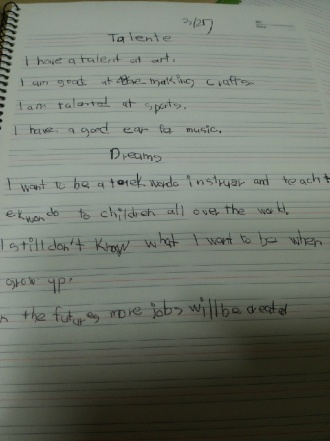 3/25
Talente
I have a talent at art.
I am good at the making crafts
I am talented at sports.
I have a good ear for music.
Dreams
I want to be a instruyer and teach t
ekwondo to children all over the world.
I still don't know what I want to be when
grow up.
n the futures more jobs will be created